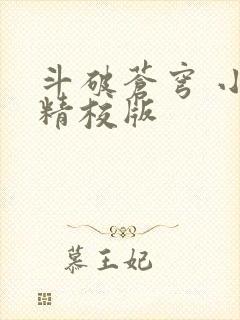 斗破蒼穹
精校版
慕王妃